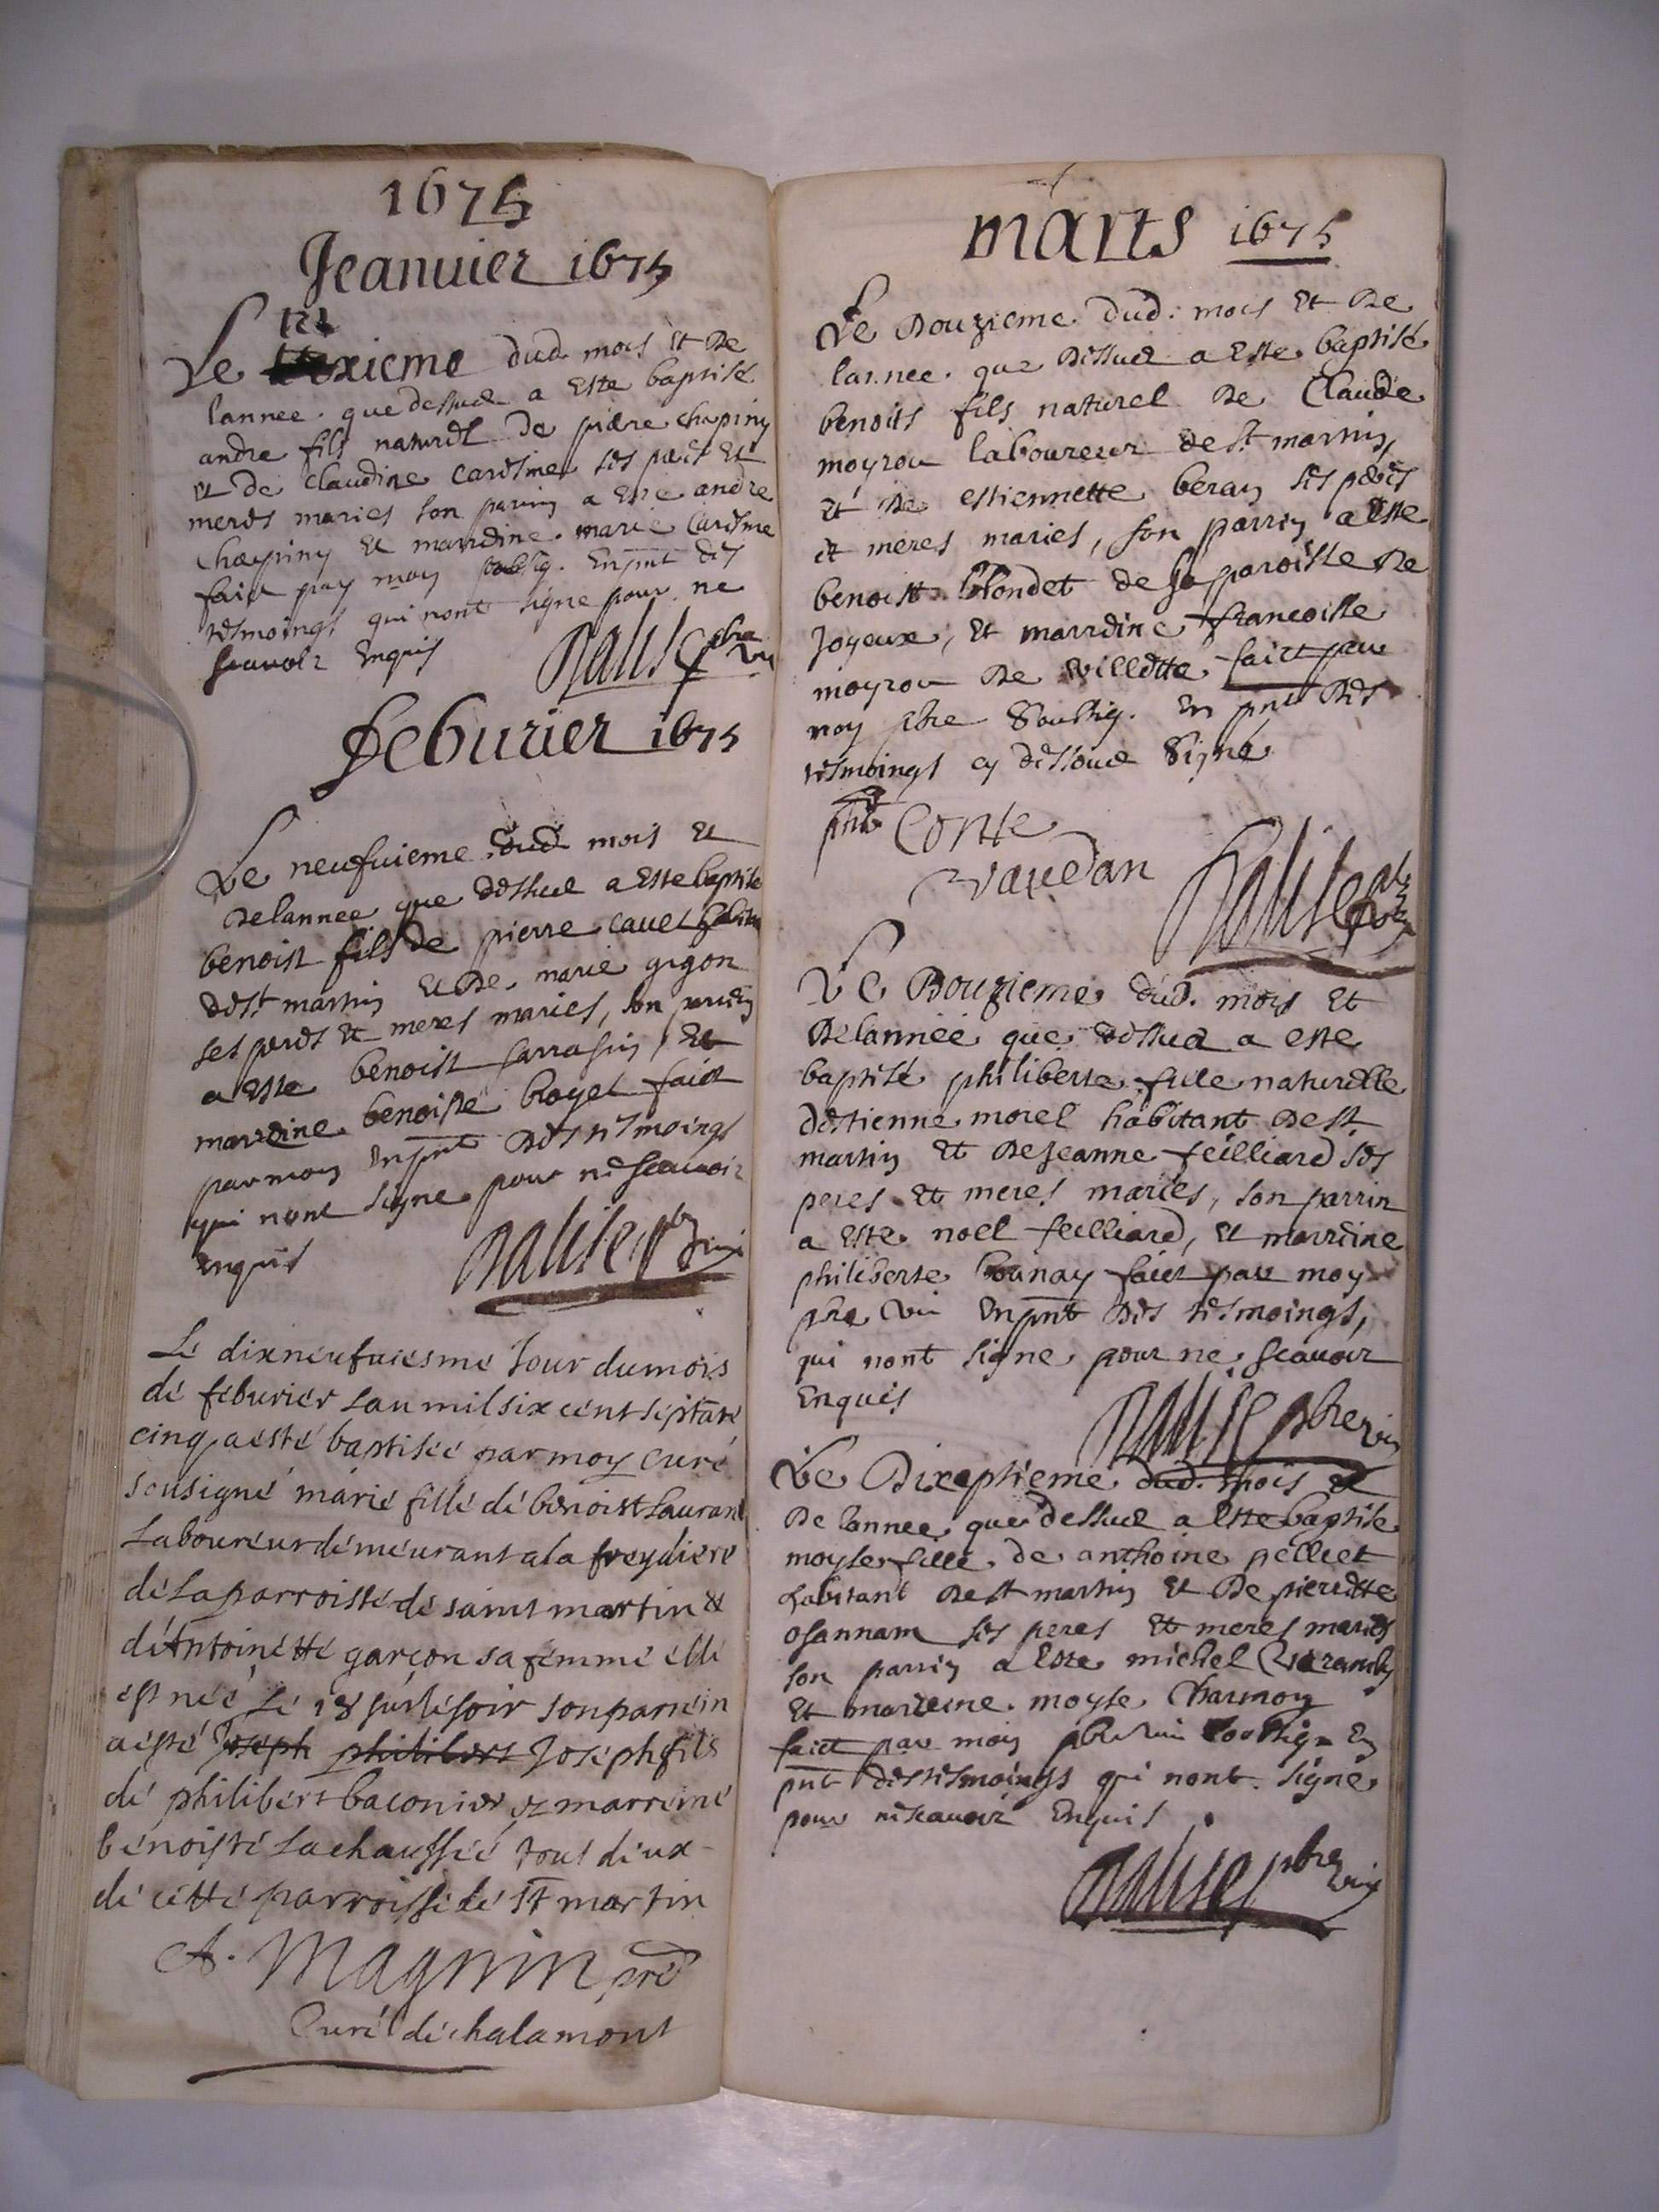 1675
Jeanuier 1675
Le xieme dud. mois et de
lannee que dessus a este baptisé
andre fils naturel de pierre chapiny
et de claudine caresmes ses peres et
meres maries son parrin a este andre
chapiny et marrdine marie caresme
faict par moy soubsig. En pnt des
tesmoings qui nont signe pour ne
scauoir Enquis
pbre vic
feburier 1675
Le neufuieme dud mois et
de lannee que dessus a este baptise
benoist fils de pierre cauet
de st martin et de marie gigon
ses peres et meres maries, son parrin
a este benoist sarrasin, Et
marrdine benoiste boyet faict
par moy En pnt des tesmoings
qui nont signe pour ne scauoir
enquis
pbre vic
Le dixneufuiesme Jour du mois
de feburier Lan mil six cent septãte
cinq a esté baptisée par moy curé
sousigné marie fille de benoist Laurand
Laboureur demeurant a la freydiere
de La parroisse de saint martin &
d'Antoinette garçon sa femme elle
est née Le 18 sur le soir son parrein
a esté Joseph philibert Joseph fils
de philibert baconier & marreine
benoiste Lachaussée tous deux
de cette parroisse de St martin
A. Magnin pre
Curé de chalamont
marts 1675
Le Douzieme dud. mois Et De
lannee que Dessus a Este baptisé
benoits fils naturel De Claude
moyrou laboureur de st martin,
et De estiennette beran ses peres
et meres maries, son parrin a este
benoist blondet de la paroisse De
Joyeux, Et marrdine francoise
moyrou De villette faict par
moy pbre Soubsig. En pnt Des
tesmoings cy dessoub Signé
Conte
vaudan
pbre vic
Le Douzieme dud. mois Et
De lannée que dessus a este
baptisé philiberte fille naturelle
destienne morel habitant De st
martin Et De Jeanne feilliard ses
peres et meres maries, son parrin
a este noel feilliard, Et marrdine
philiberte bounay faict par moy
pbre vic En pnt Des tesmoings,
qui nont signe pour ne scauoir
Enquis
pbre vic
Le Dixseptieme dud. mois et
De lannee que dessus a Este baptise
moyse fille de anthoine pelliet
habitant De st martin Et De pierrette
osannam ses peres Et meres maries
son parrin a Este michel
Et marreine moyse Charmoy
faict par moy pbre vic soubsig. En
pnt des tesmoings qui nont signe
pour ne scauoir Enquis
pbre vic